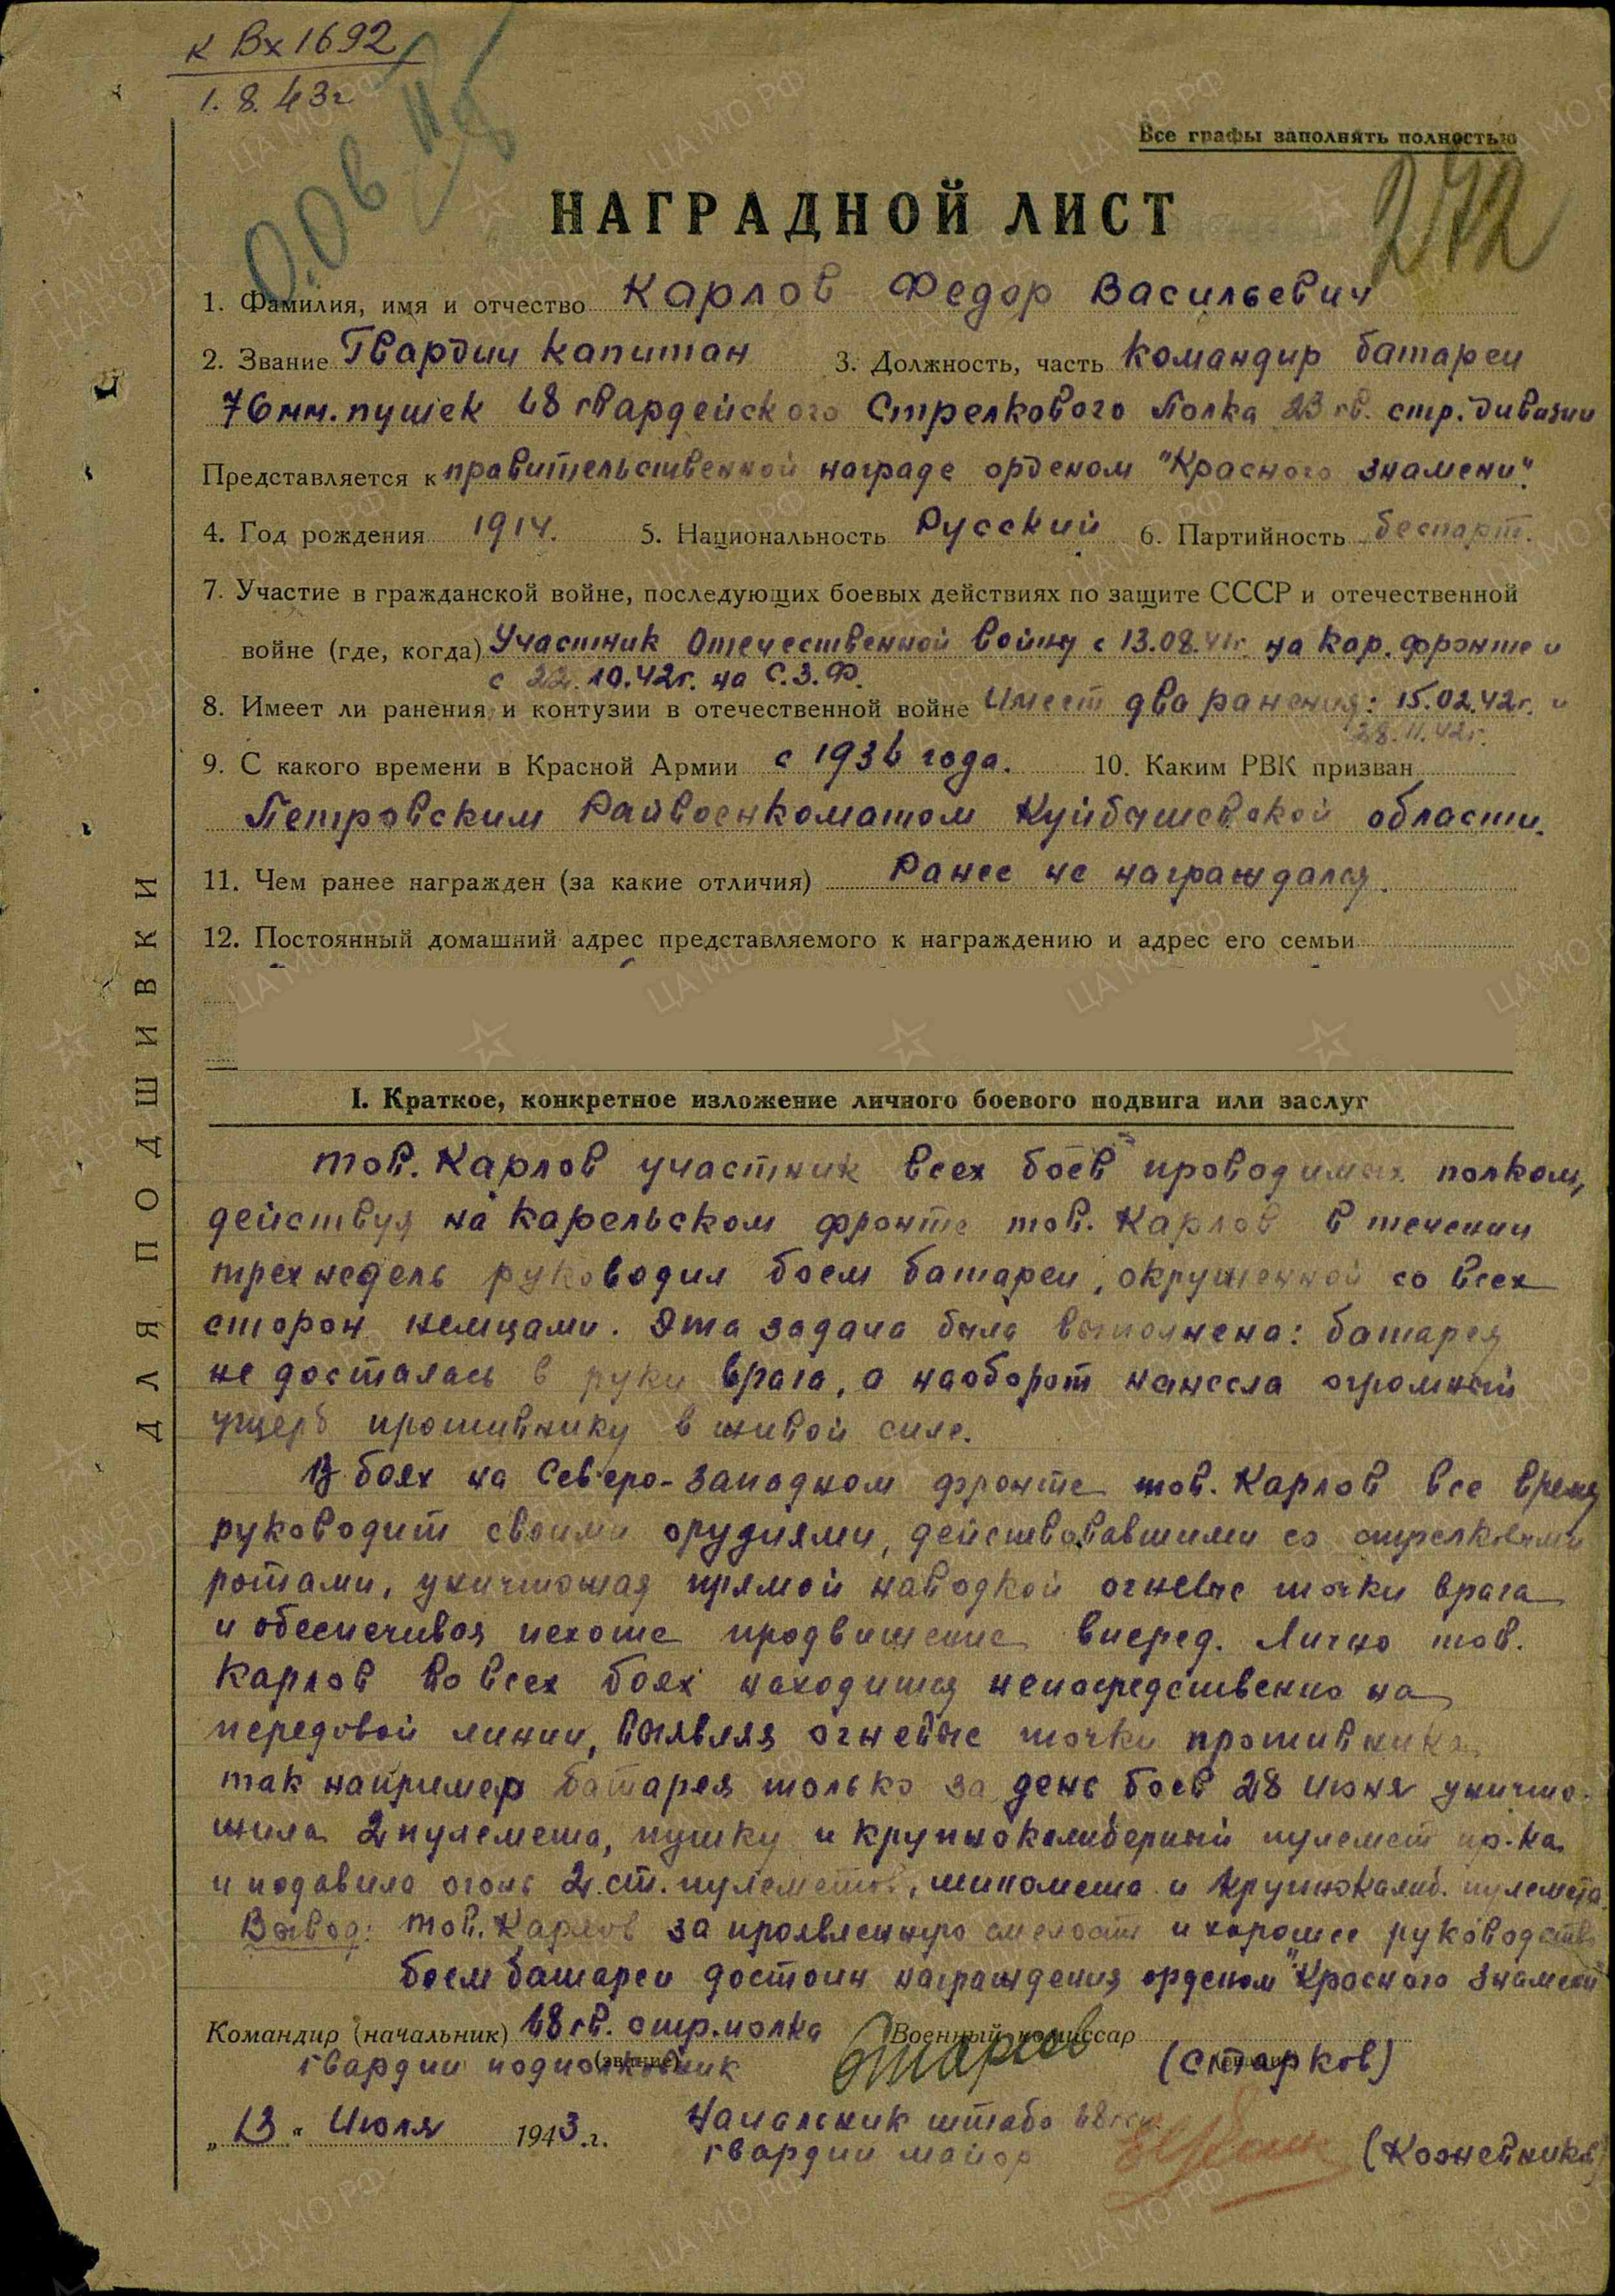 к Вх 1692
1. 8. 43г
Все графы заполнять полностью
272
НАГРАДНОЙ ЛИСТ
1. Фамилия, имя и отчество Карлов Федор Васильевич
2. Звание Гвардии капитан 3. Должность, часть командир батареи
76 мм. пушек 68 гвардейского Стрелкового Полка 23 гв. стр. дивизии
Представляется к правительственной награде орденом "Красного знамени".
4. Год рождения 1914. 5. Национальность Русский 6. Партийность беспарт.
7. Участие в гражданской войне, последующих боевых действиях по защите СССР и отечественной
войне (где, когда) Участник Отечественной войны с 13.08.41г. на Кар. фронте и
с 22.10.42г. на С.З.Ф.
8. Имеет ли ранения и контузии в отечественной войне Имеет два ранения: 15.02.42г. и
28.11.42г.
9. С какого времени в Красной Армии с 1936 года. 10. Каким РВК призван
Петровским Райвоенкоматом Куйбышевской области.
11. Чем ранее награжден (за какие отличия) Ранее не награждался.
12. Постоянный домашний адрес представляемого к награждению и адрес его семьи
ДЛЯ ПОДШИВКИ
I. Краткое, конкретное изложение личного боевого подвига или заслуг
тов. Карлов участник всех боев проводимых полком,
действуя на карельском фронте тов. Карлов в течении
трех недель руководил боем батареи, окруженной со всех
сторон немцами. Эта задача была выполнена: батарея
не досталась в руки врага, а наоборот нанесла огромный
ущерб противнику в живой силе.
В боях на Северо-западном фронте тов. Карлов все время
руководит своими орудиями, действовавшими со стрелковыми
ротами, уничтожая прямой наводкой огневые точки врага
и обеспечивая пехоте продвижение вперед. Лично тов.
Карлов во всех боях находится непосредственно на
передовой линии, выявляя огневые точки противника,
так например батарея только за день боев 28 июня уничто-
жила 2 пулемета, пушку и крупнокалиберный пулемет пр-ка
и подавила огонь 2 ст. пулеметов, миномета и крупнокалиб. пулемета.
Вывод: тов. Карлов за проявленную смелость и хорошее руководство
боем батареи достоин награждения орденом "Красного знамени"
Командир (начальник) 68 гв. стр. полка Военный комиссар
гвардии подполковник (звание) Старков (Старков)
„13" Июля 1943 г. Начальник штаба 68
гвардии майор (Кожевников)
ЦА МО РФ
ПАМЯТЬ НАРОДА